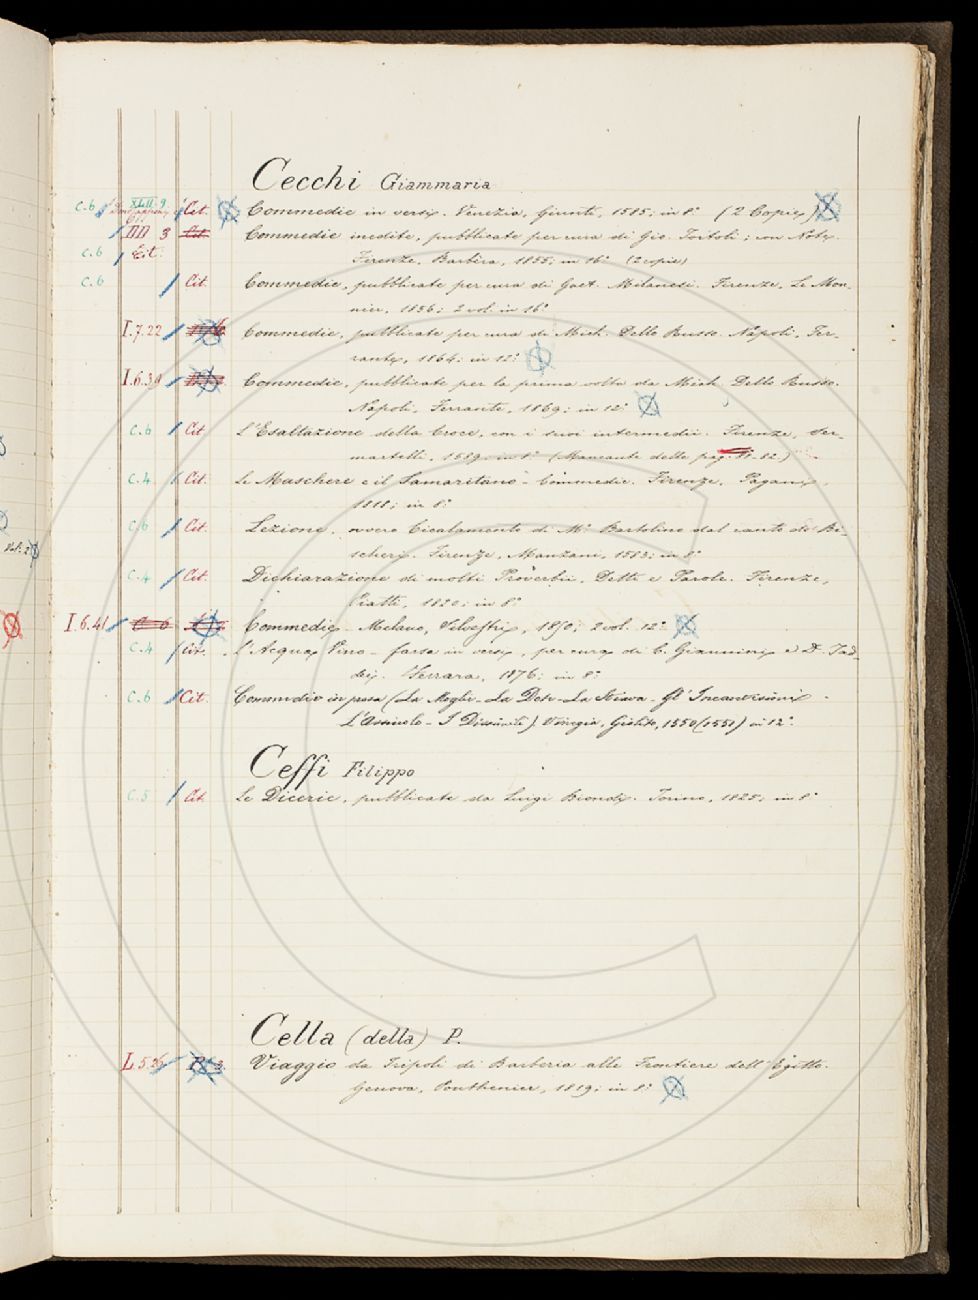 Cecchi Giammaria
C. 6 XLII. 9. Cit. Commedie in versi. Venezia, Giunti, 1585; in 8° (2 Copie)
III 3 Cit. Commedie inedite, pubblicate per cura di Gio. Tortoli; con Note.
C. 6 Cit. Firenze, Barbèra, 1855; in 16° (2 copie)
C. 6 Cit. Commedie, pubblicate per cura di Gaet. Milanesi. Firenze, Le Mon-
nier, 1856; 2 vol. in 16°
I. 7. 22 Commedie, pubblicate per cura di Mich. Dello Russo. Napoli, Fer-
rante, 1864; in 12°
I. 6. 39 Commedie, pubblicate per la prima volta da Mich. Dello Russo.
Napoli, Ferrante, 1869; in 12°
C. 6 Cit. L'Esaltazione della Croce, con i suoi intermedii. Firenze, Ser-
martelli, 1589. in 8° (Mancante delle pag. 82)
C. 4 Cit. Le Maschere e il Samaritano - Commedie. Firenze, Pagani,
1818; in 8°
C. 6 Cit. Lezione, ovvero Cicalamento di M° Bartolino dal canto de' Bi-
scheri. Firenze, Manzani, 1583; in 8°
C. 4 Cit. Dichiarazione di molti Proverbii, Detti e Parole. Firenze,
Piatti, 1820; in 8°
I. 6. 41 C. 6 Commedie - Milano, Silvestri, 1850; 2 vol. 12°
C. 4 Cit. L'Acqua Vino - farsa in versi, per cura di C. Giannini e D. Tad-
dei. Ferrara, 1876; in 8°
C. 6 Cit. Commedie in prosa (La Moglie - La Dote - La Stiava - Gl' Incantesimi -
L'Assiuolo - I Dissimili) Venegia, Giolito, 1550 (1551) in 12°
Ceffi Filippo
C. 5 Cit. Le Dicerie, pubblicate da Luigi Biondi. Torino, 1825; in 8°
Cella (della) P.
L 5 26 Viaggio da Tripoli di Barberia alle Frontiere dell' Egitto.
Genova, Ponthenier, 1819; in 8°
Vol. 2